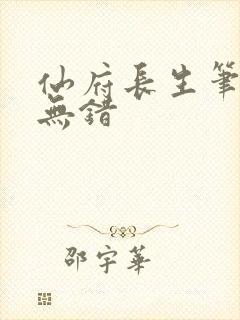 仙府長生筆
無錯
邵宇華